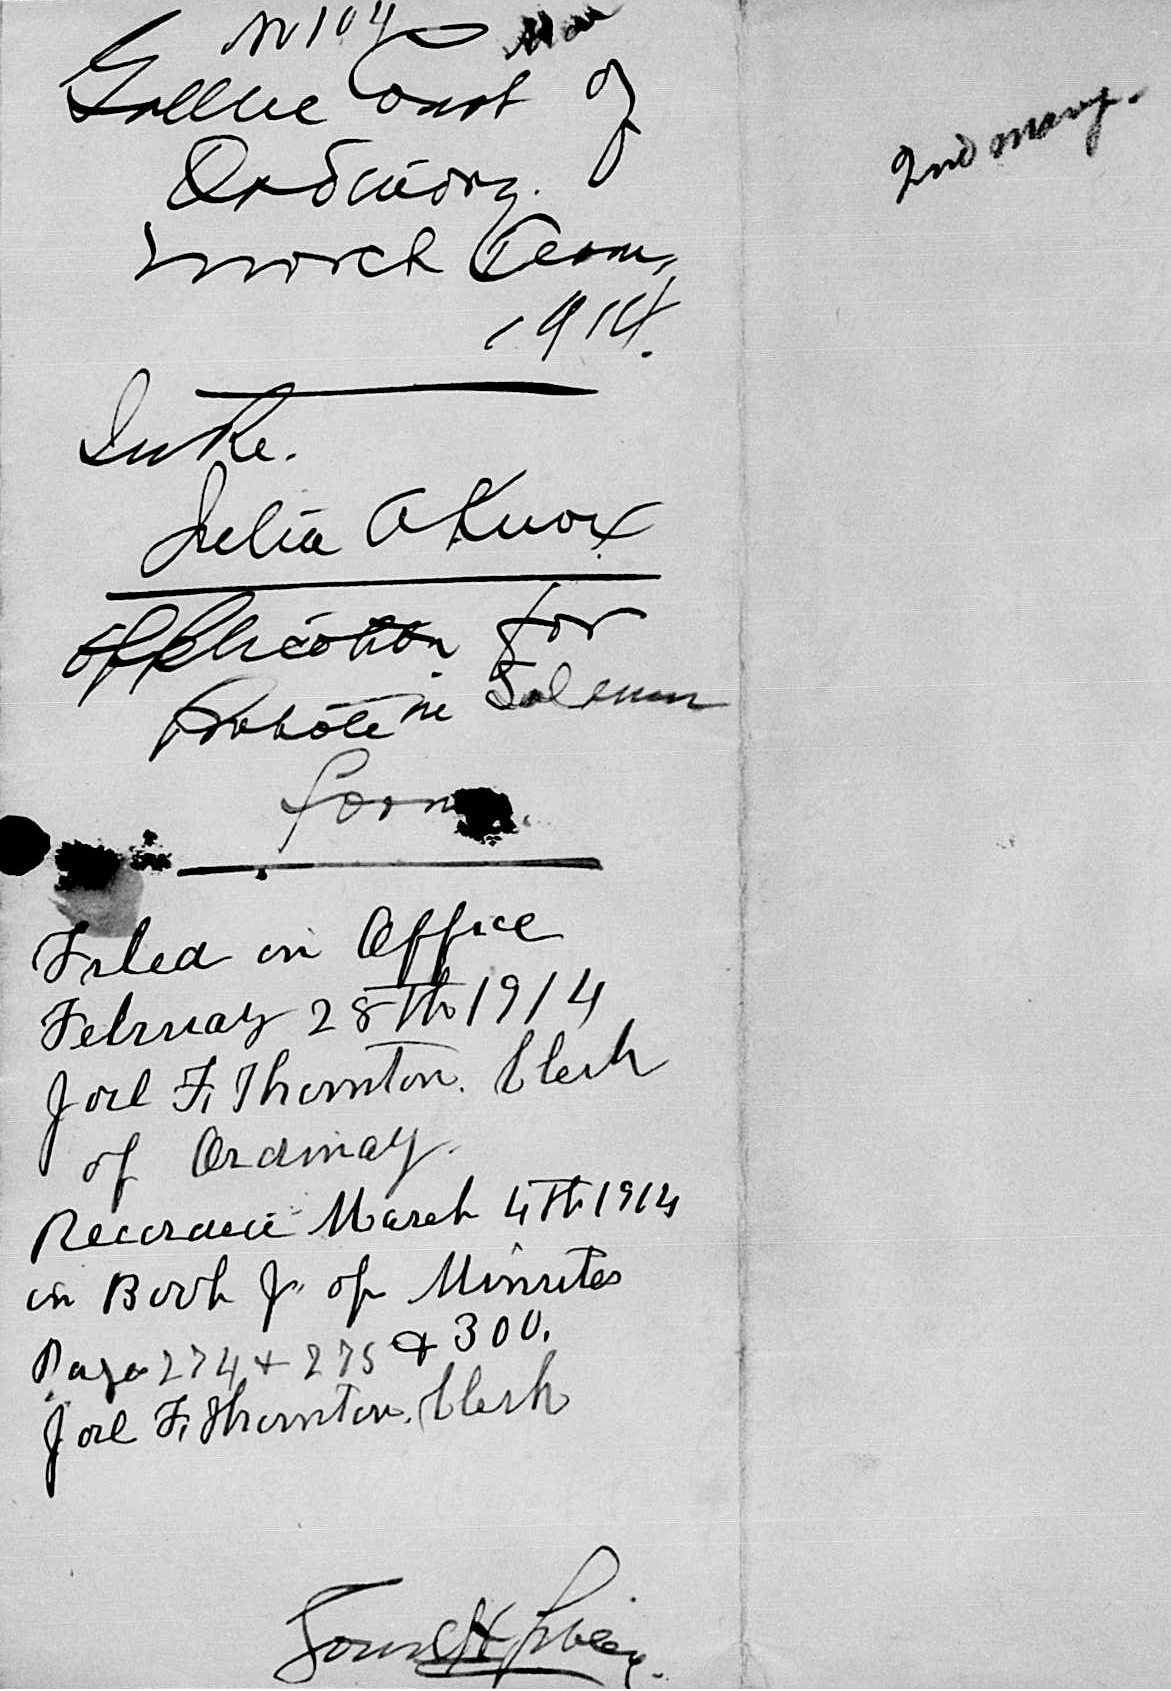 No 104
Court of
Ordinary.
March Term,
1914.
In Re.
Julia A Knox
Application for
Probate in Solemn
form.
Filed in Office
February 28Th 1914
Joel F. Thornton. Clerk
of Ordinary.
Recorded March 4Th 1914
in Book J. of Minutes
Page 274 + 275 & 300.
Joel F. Thornton. Clerk
2nd